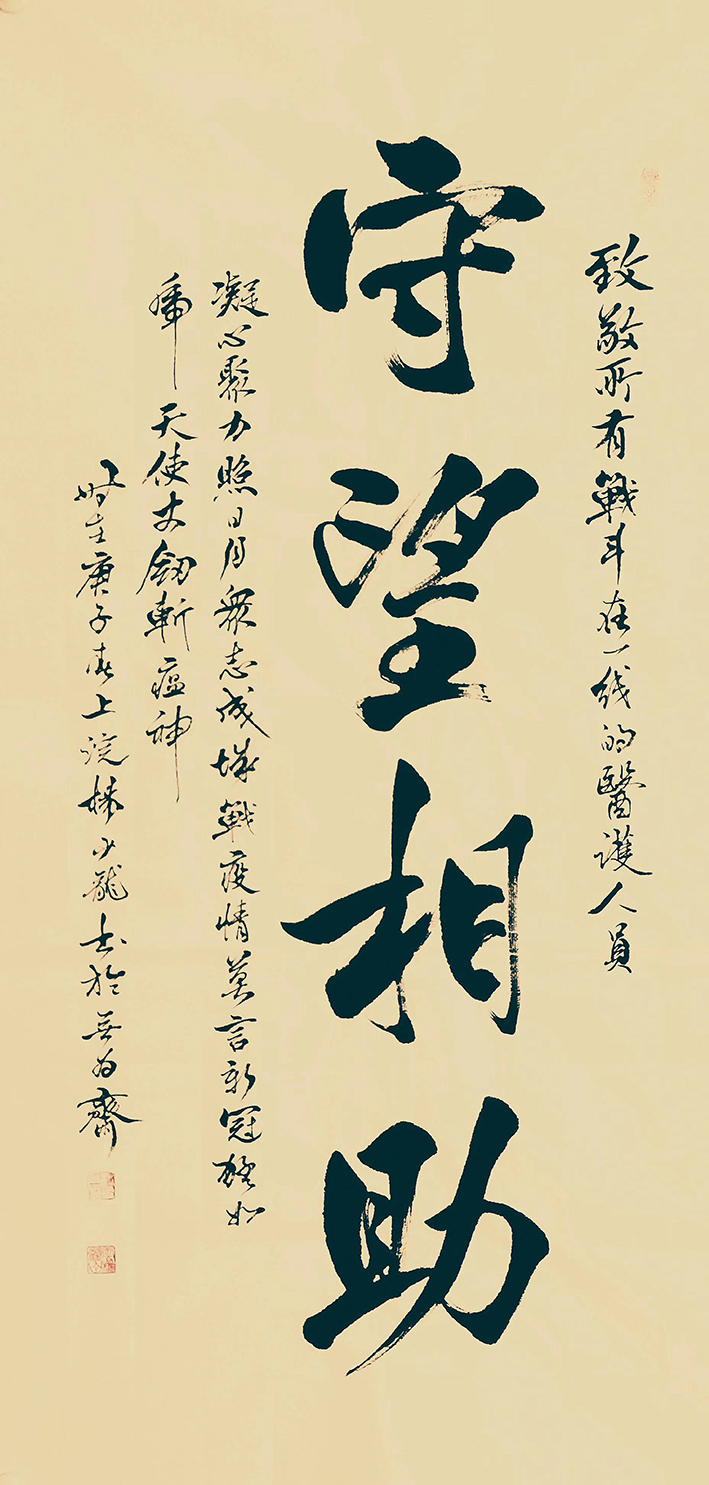 致敬所有戰斗在一线的醫護人員
守望相助
凝心聚力照日月眾志成城戰疫情莫言新冠如
虎天使丈劍斬瘟神
時在庚子春上浣少龍书於無为齋